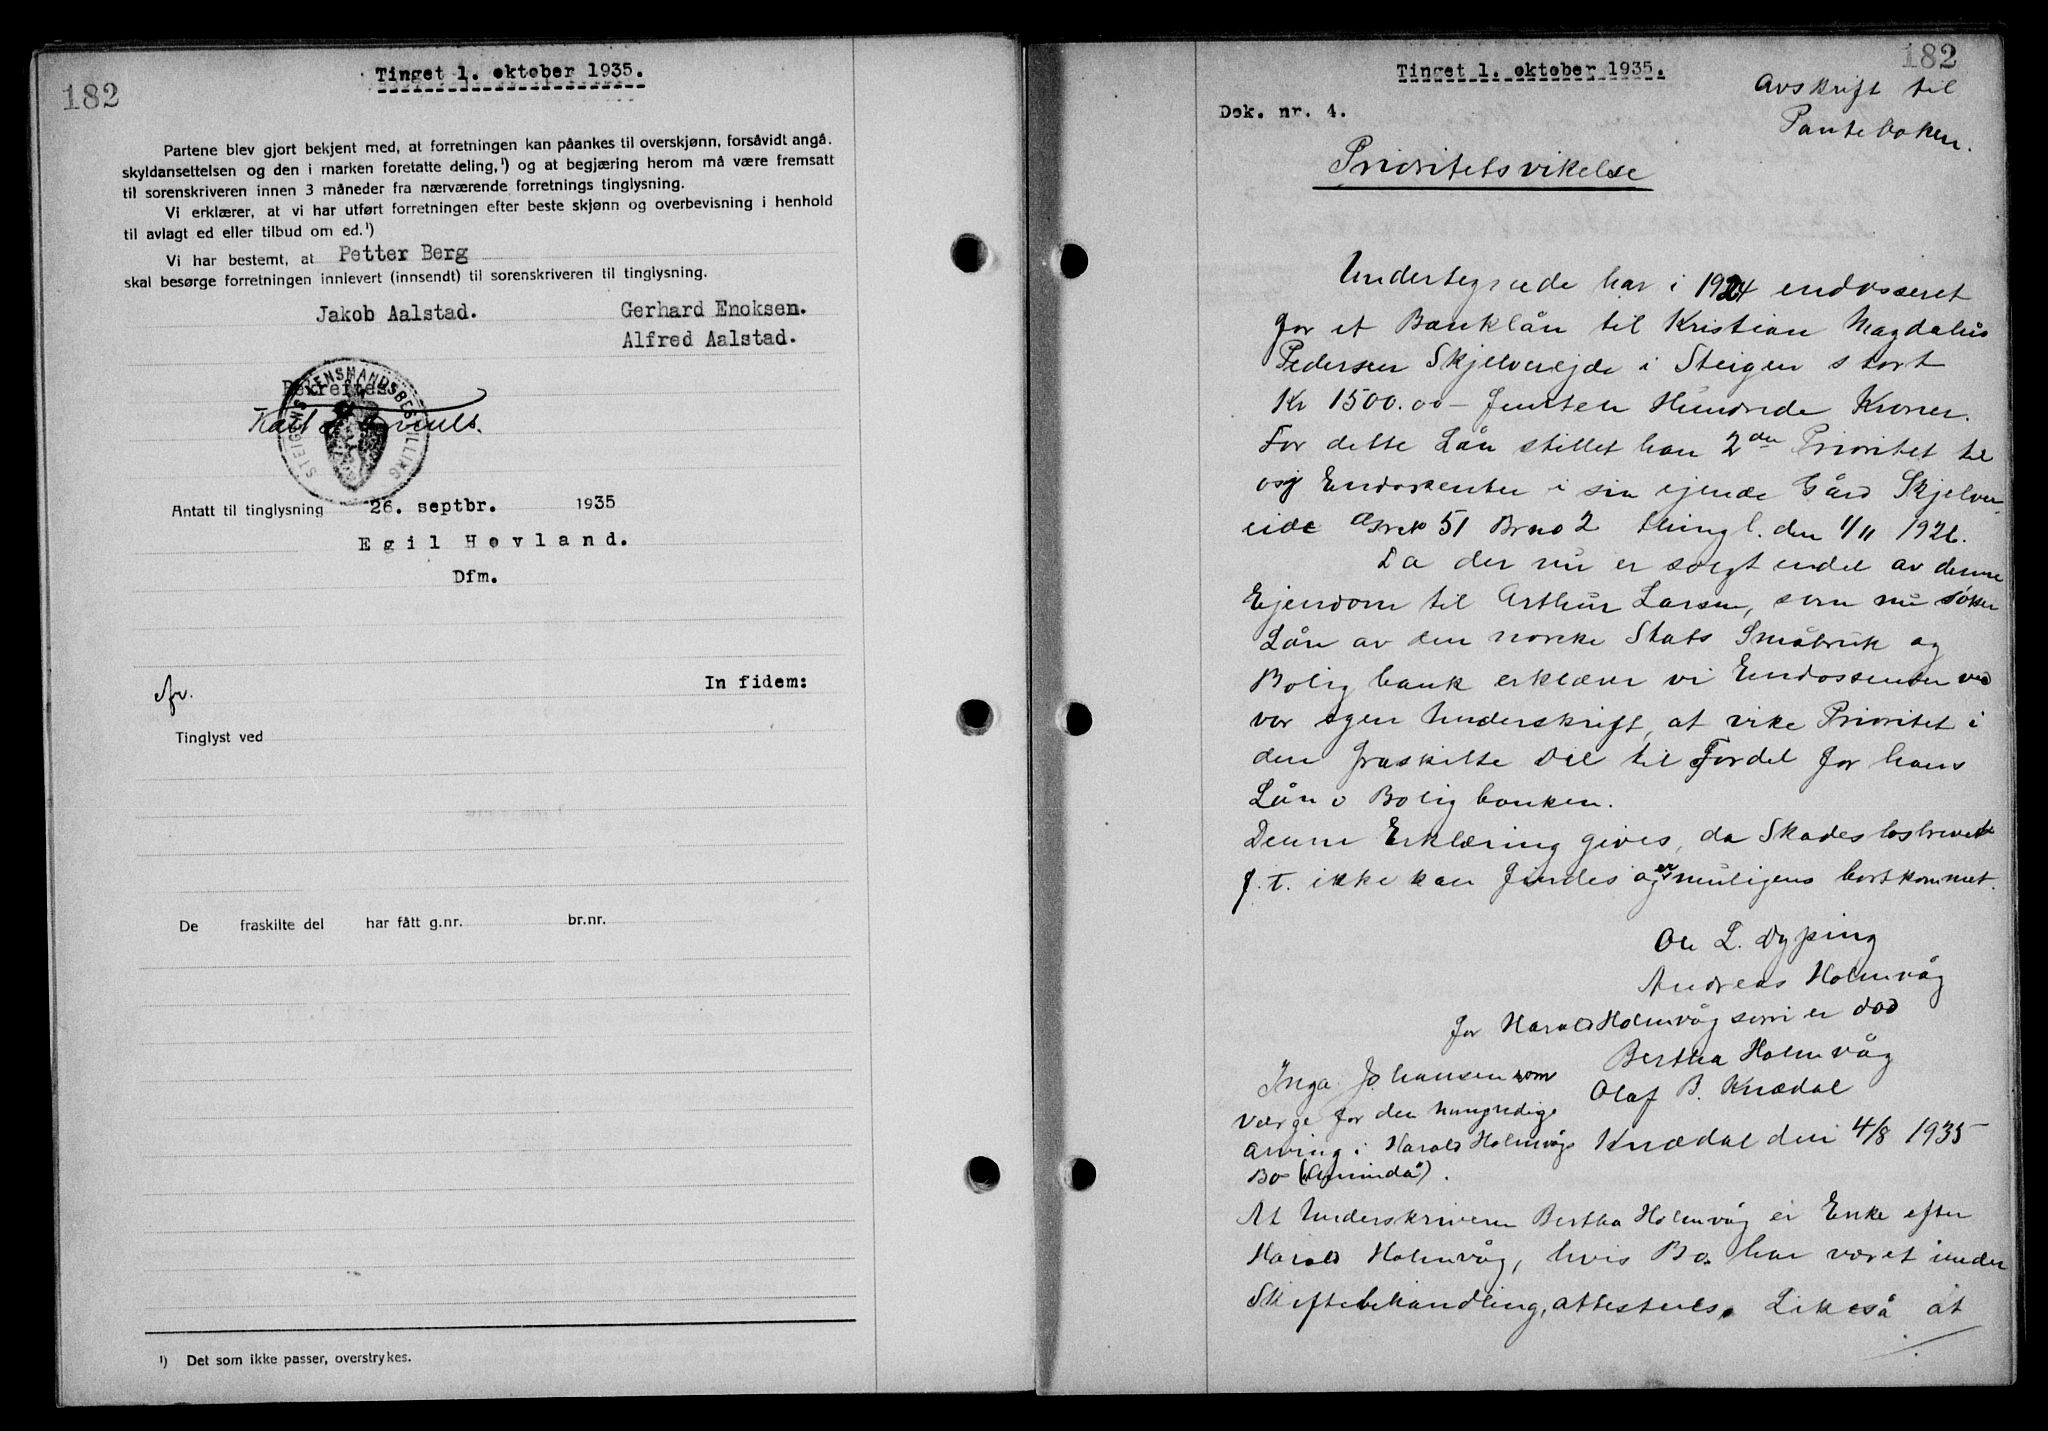 182
Tinget 1. oktober 1935.
Partene blev gjort bekjent med, at forretningen kan påankes til overskjønn, forsåvidt angå.
skyldansettelsen og den i marken foretatte deling,¹) og at begjæring herom må være fremsatt
til sorenskriveren innen 3 måneder fra nærværende forretnings tinglysning.
Vi erklærer, at vi har utført forretningen efter beste skjønn og overbevisning i henhold
til avlagt ed eller tilbud om ed.¹)
Vi har bestemt, at Petter Berg
skal besørge forretningen innlevert (innsendt) til sorenskriveren til tinglysning.
Jakob Aalstad. Gerhard Enoksen.
Alfred Aalstad.
Bekreftes
STEIGENS LENSMANDSBESTILLING
Antatt til tinglysning 26. septbr. 1935
Egil Hovland.
Dfm.
In fidem:
Tinglyst ved
De fraskilte del har fått g.nr. br.nr.
¹) Det som ikke passer, overstrykes.
182
Tinget 1. oktober 1935.
Avskrift til
Panteboken.
Dok. nr. 4.
Prioritetsvikelse
Undertegnede har i 1924 endosseret
for et Banklån til Kristian Magdalus
Pedersen Skjelverejde i Steigen stort
Kr 1500.00 – femten Hundrede Kroner.
For dette Lån stillet han 2den Prioritet til
os Endossenter i sin ejende Gård Skjelver-
eide Gnr 51 Brno 2 thingl. den 1/11 1926.
Da der nu er solgt endel av denne
Ejendom til Arthur Larsen, som nu søker
Lån av den norske Stats Småbruk og
Bolig bank erklærer vi Endossenter ved
vor egen Underskrift, at vike Prioritet i
den fraskilte Del til Fordel for hans
Lån i Bolig banken.
Denne Erklæring gives, da Skadesløsbrevet
f. t. ikke kan findes og er muligens bortkommet.
Ole L. Dyping
Andreas Holmvåg
for Harald Holmvåg som er død
Bertha Holmvåg
Inga Johansen som
Olaf B. Knædal
Værge for den umyndige
Arving i Harald Holmvågs
Knædal den 4/8 1935
Bo
At Underskriveren Bertha Holmvåg er Enke efter
Harald Holmvåg, hvis Bo har været under
Skiftebehandling, attesteres. Likeså at